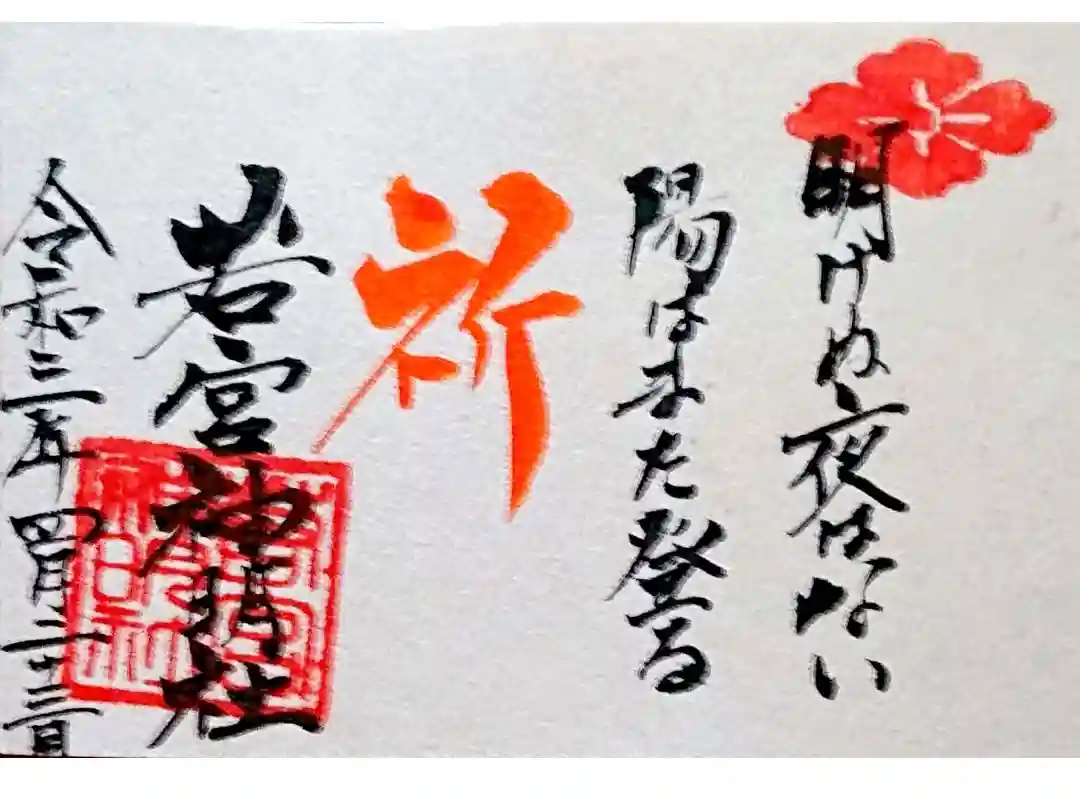 明けぬ夜はない
陽はまた登る
祈
岩宮神明社
令和三年四月二十三日